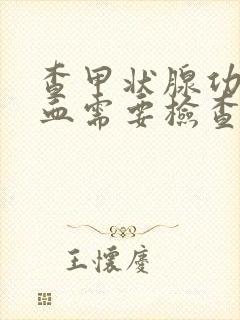 查甲状腺功
血需要檢查
王懷慶